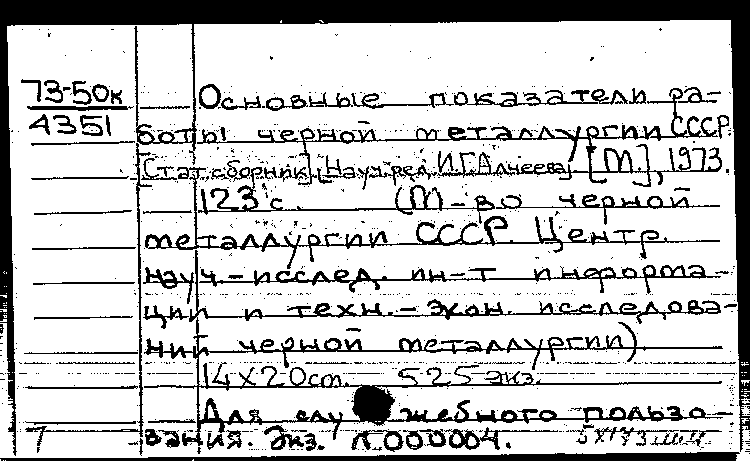 73-50к
4351
Основные показатели ра-
боты черной металлургии СССР.
[Стат. сборник]. [Науч. ред. И.Г. Алчеева]. [М.], 1973.
123 с. (М-во черной
металлургии СССР. Центр.
науч.-исслед. ин-т информа-
ции и техн.-экон. исследова-
ний черной металлургии).
14х20cm. 525 экз.
Для служебного пользо-
вания. Экз. п.000004.